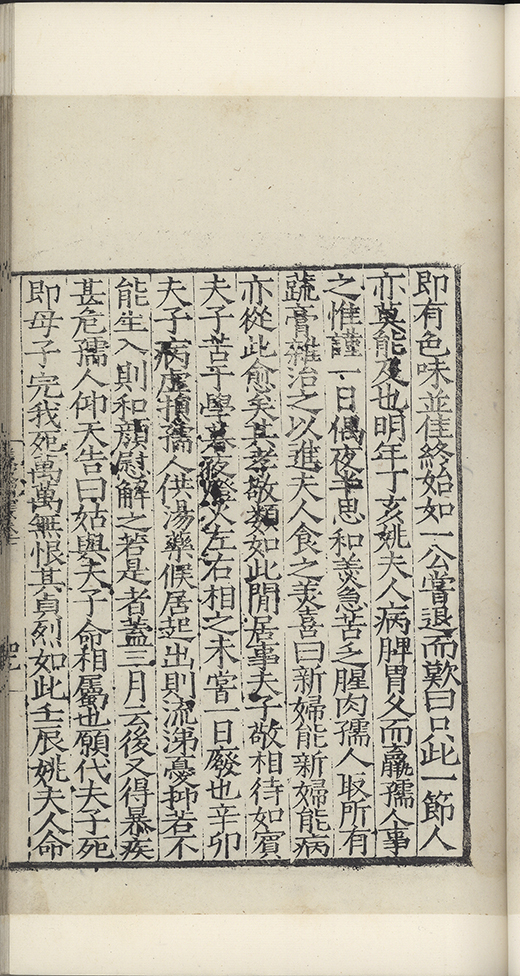 即有色味並佳終始如一公嘗退而歎曰只此一節人
亦莫能及也明年丁亥姚夫人病脾胃久而羸孺人事
之惟謹一日偶夜半思和羹急苦乏腥肉孺人取所有
蔬膏雜治之以進夫人食之美喜曰新婦能新婦能病
亦從此愈矣其孝敬類如此閒居事夫子敬相待如賓
夫子苦于學暮夜燈火左右相之未嘗一日廢也辛卯
夫子病虛損孺人供湯藥候居起出則流涕憂抑若不
能生入則和顏慰解之若是者蓋三月云後又得暴疾
甚危孺人仰天告曰姑與夫子命相屬也願代夫子死
即母子完我死萬萬無恨其貞烈如此壬辰姚夫人命